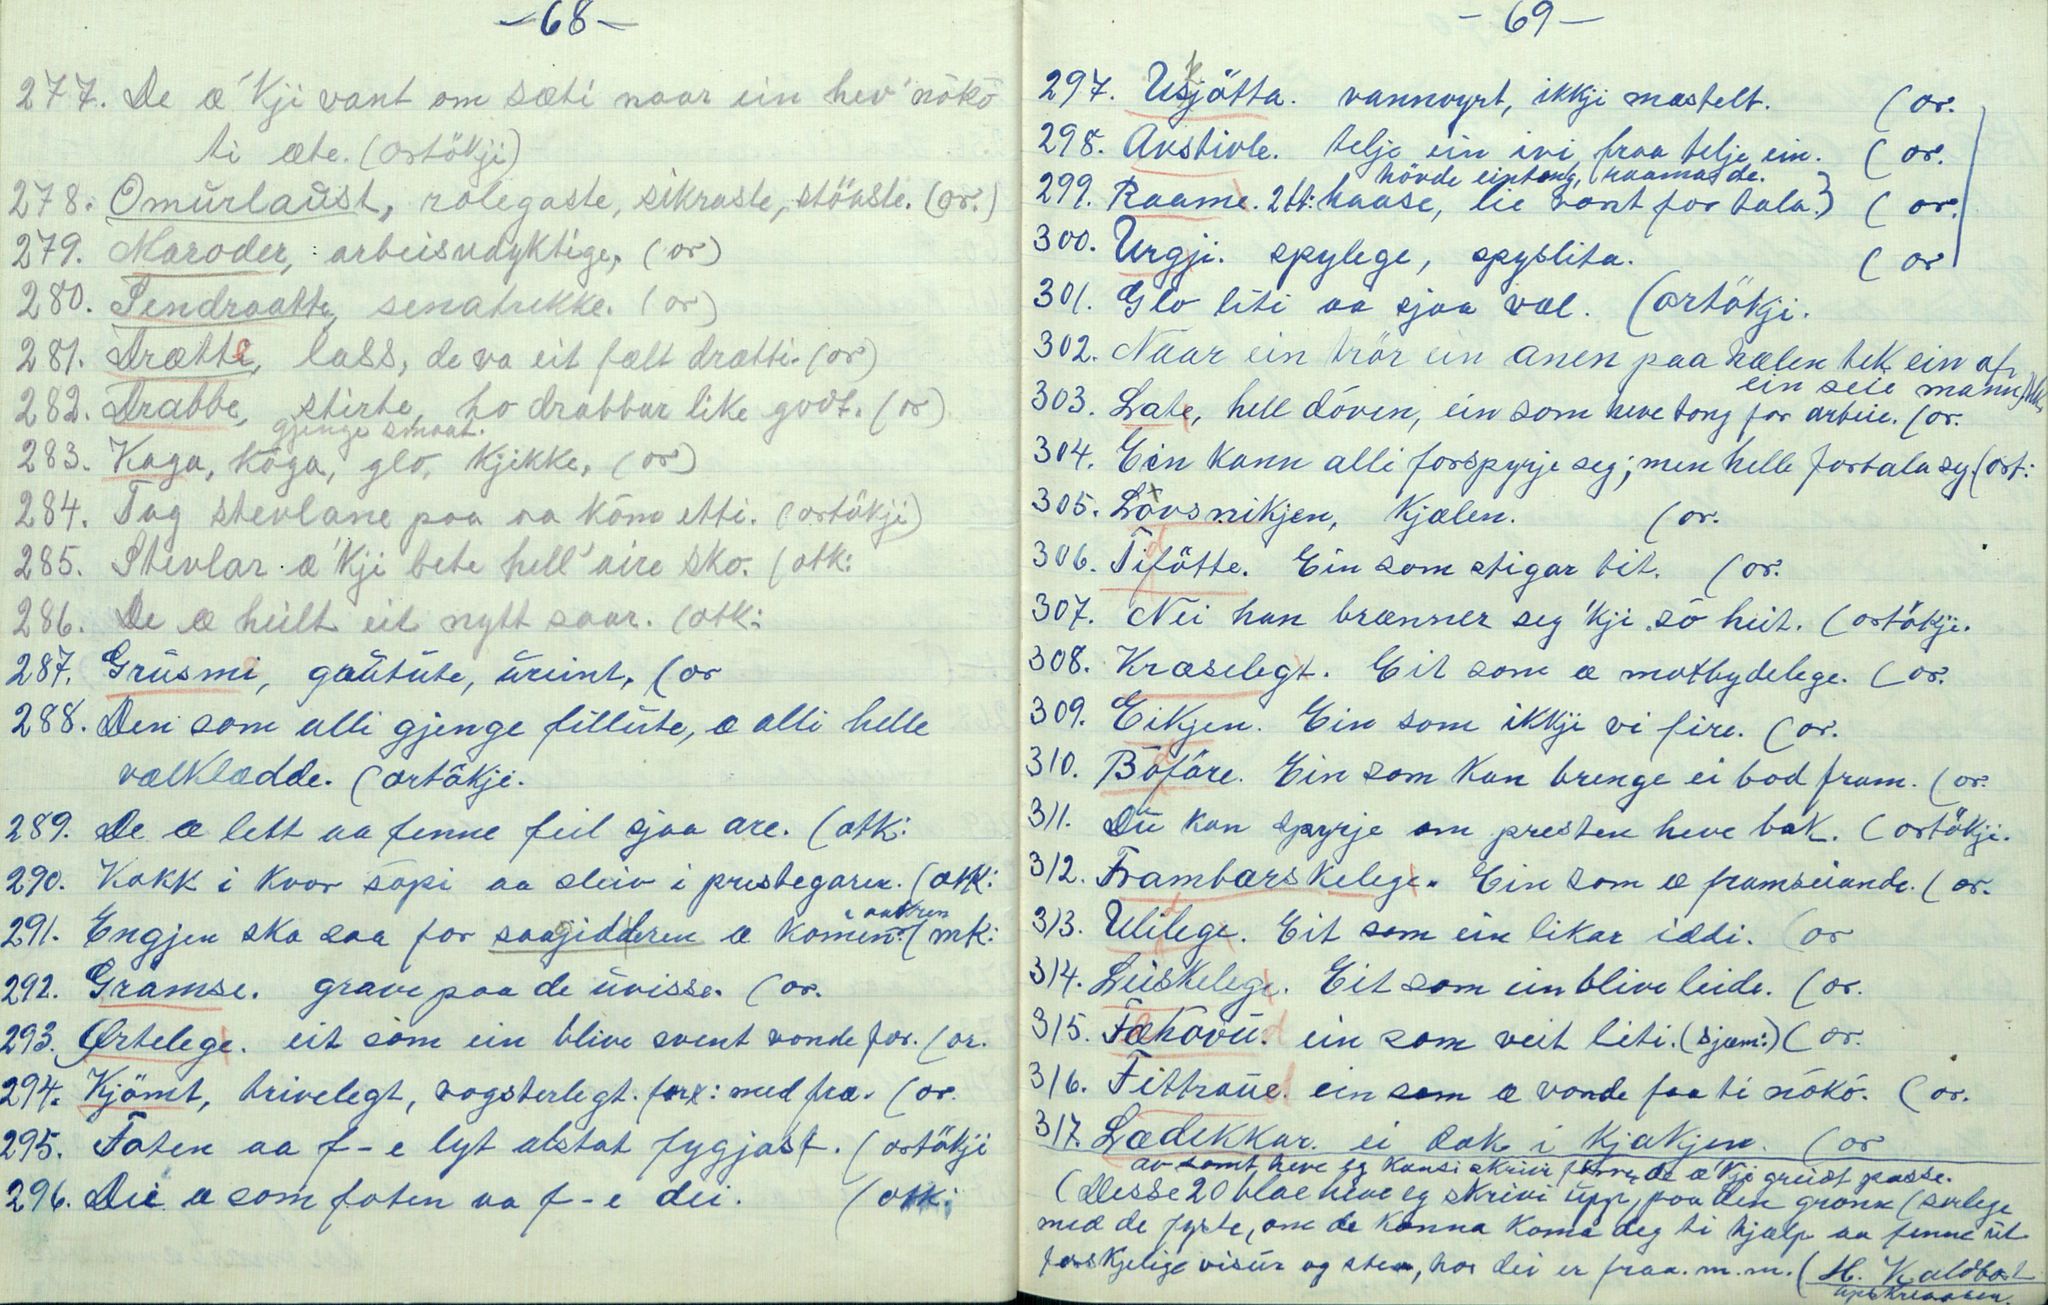 —68—
277. De æ' kji vant om sæti naar ein hev' nökö
ti æte. (ortökji)
278. Omurlaust, rolegaste, sikraste, stöaste. (or.)
279. Maroder, arbeisudyktige, (or)
280. Sendraatte, senatrekke. (or)
281. Drætte, lass, de va eit fælt drætti. (or)
282. Drabbe, stirte, ho drabbar like godt. (or)
gjenge smaat.
283. Kaga, köga, glo, kjikke, (or)
284. Tag stevlane paa aa köm etti. (ortökji)
285. Stevlar æ 'kji bete hell' aire sko. (otk:
286. De æ heilt eit nytt saar. (otk:
287. Grusmi, gautute, ureint, (or
288. Den som alli gjenge fillute, æ alli helle
vælklædde. (ortökji.
289. De æ lett aa fenne feil sjaa are. (otk:
290. Kokk i kvor söpi aa sleiv i prestegaren. (otk:
i aakren
291. Engjen ska saa for saagidderen æ komen. (mk:
292. Gramse. grave paa de uvisse. (or.
293. Ørtelege. eit som ein blive svent vonde for. (or.
294. Kjömt, trivelegt, vogsterlegt. forx: med fræ. (or.
295. Faten aa f-e lyt alstat fygjast. (ortökji
296. Dei æ som faten aa f-e dei. (otk:
—69—
297. Uskjötta. vannvyrt, ikkji mæstelt. (or.
298. Avstivle. telje ein ivi, fraa telje ein. (or.
hövde eintong, (raamas de.
299. Raame. 2tt: haase, lie vont for tala.) (or.
300. Urgji. spylege, spyslita. (or
301. Glo liti aa sjaa væl. (ortökji.
302. Naar ein trör ein anen paa hælen tek ein af
ein seie mann)
303. Late, hell döven, ein som heve tong for arbeie. (or.
304. Ein kann alli forspyrje seg; men helle fortala seg. (ort:
305. Lövsnikjen, kjælen. (or.
306. Tifötte. Ein som stigar tit. (or.
307. Nei han brænner seg 'kji so heit. (ortökji.
308. Kræselegt. Eit som æ motbydelege. (or.
309. Eikjen. Ein som ikkji vi fire. (or.
310. Böföre. Ein som kan brenge ei bod fram. (or.
311. Du kan spyrje om presten heve bok. (ortökji.
312. Frambarskelege. Ein som æ framseiande. (or.
313. Ulilege. Eit som ein likar iædi. (or
314. Leiskelege. Eit som ein blive leide. (or.
315. Fækovu. ein som veit liti. (sjæm:) (or.
316. Fittraue. ein som æ vonde faa ti nökö. (or.
317. Lædekkar. ei dok i kjakjen. (or
av somt heve eg kansi skriv förre, de æ 'kji greidt passe.
(Desse 20 blae heve eg skrivi upp, paa den gronn (serlege
med de fyste, om de kanna koma deg ti hjælp aa fenne ut
forskjelige visur og stev, hor dei er fraa. m.m. (H. Kaldbast
upskrivaaen.